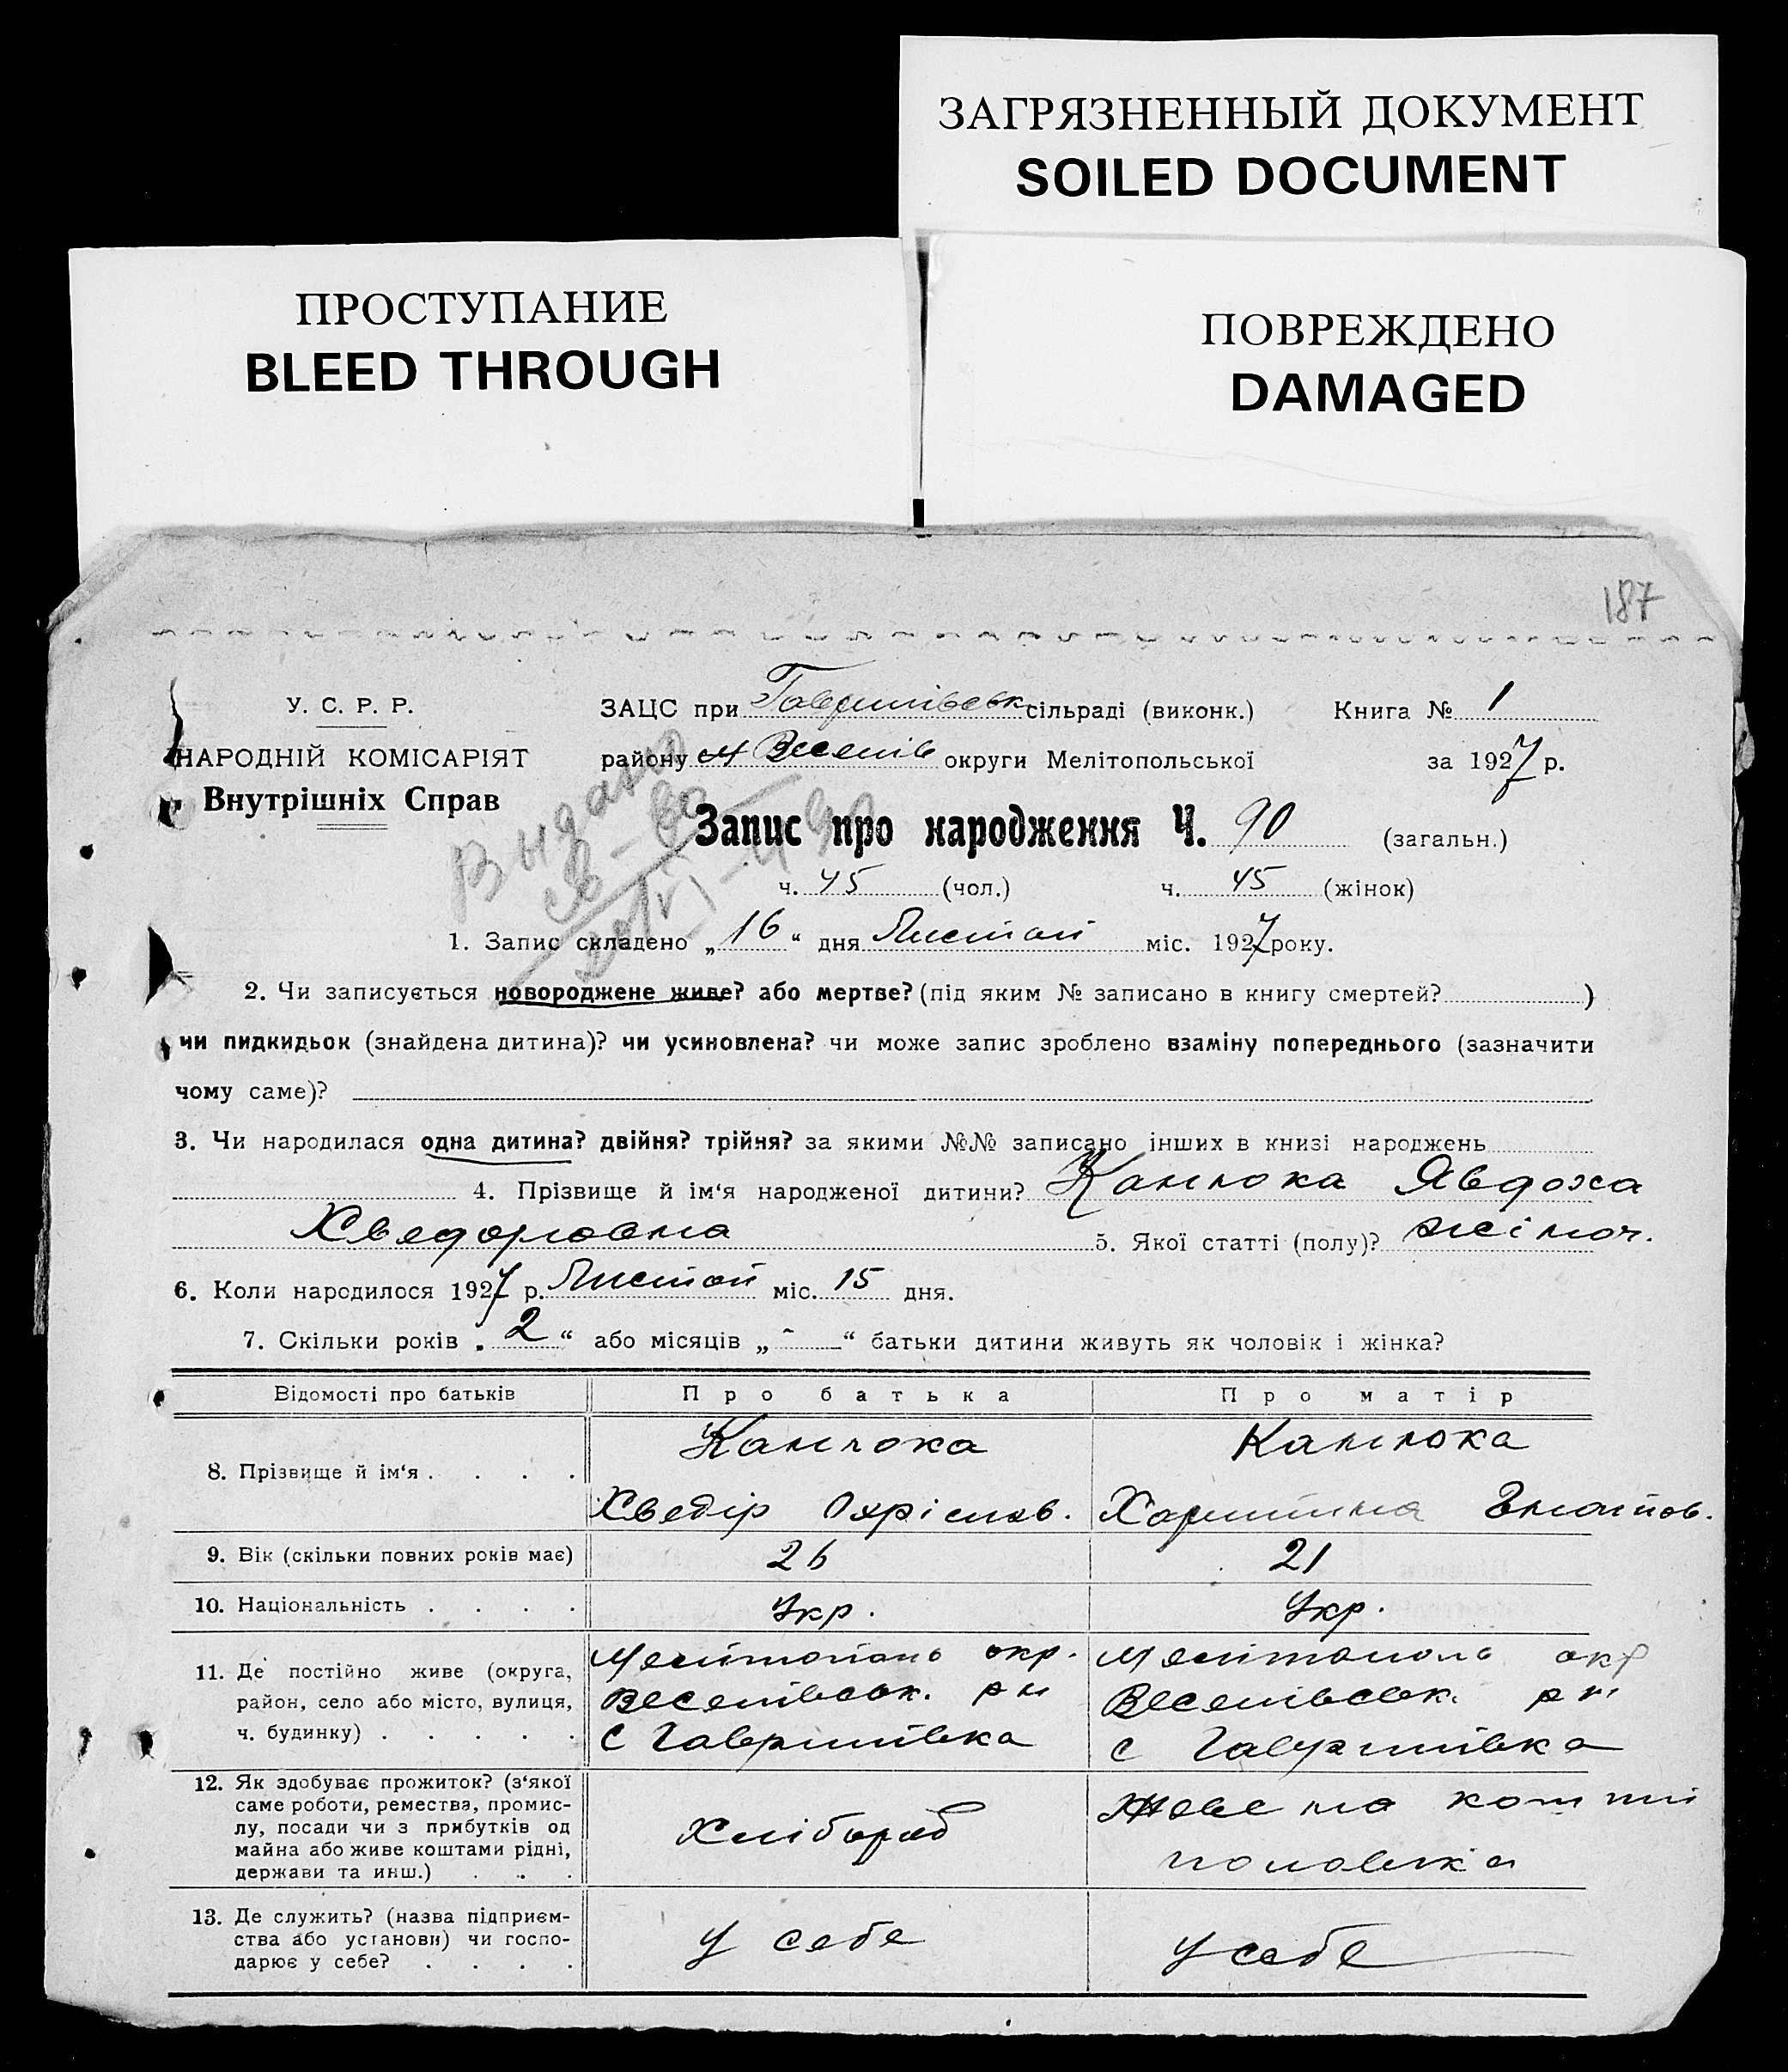 ЗАГРЯЗНЕННЫЙ ДОКУМЕНТ
SOILED DOCUMENT
ПРОСТУПАНИЕ
BLEED THROUGH
ПОВРЕЖДЕНО
DAMAGED
187
У. С. Р. Р.
НАРОДНІЙ КОМІСАРІЯТ
Внутрішніх Справ
ЗАЦС при Гаврилівськ сільраді (виконк.) Книга № 1
району Веселів округи Мелітопольської за 1927 р.
Выдано
Запис про народження Ч. 90 (загальн.)
ч. 45 (чол.) ч. 45 (жінок)
1. Запис складено „16“ дня Листоп міс. 1927 року.
2. Чи записується новороджене живе? або мертве? (під яким № записано в книгу смертей? )
чи пидкидьок (знайдена дитина)? чи усиновлена? чи може запис зроблено взаміну попереднього (зазначити
чому саме)?
3. Чи народилася одна дитина? двійня? трійня? за якими №№ записано інших в книзі народжень
4. Прізвище й ім'я народженої дитини? Канюка Явдоха
Хведоровна 5. Якої статті (полу)? жіноч.
6. Коли народилося 1927 р. Листоп міс. 15 дня.
7. Скільки років „2“ або місяців „-“ батьки дитини живуть як чоловік і жінка?
Відомості про батьків Про батька Про матір
8. Прізвище й ім'я . . . .
Канюка Канюка
Хведір Харитина
9. Вік (скільки повних років має) 26 21
10. Національність . . . . Укр. Укр.
11. Де постійно живе (округа,
район, село або місто, вулиця,
ч. будинку) . . . . .
Мелітополь окр. Мелітополь окр
Веселівськ. рн Веселівськ. рн
С Гаврилівка с Гаврилівка
12. Як здобуває прожиток? (з'якої
саме роботи, ремества, промис-
лу, посади чи з прибутків од
майна або живе коштами рідні,
держави та инш.) . . .
Хлібороб
Живе на кошти
чоловіка
13. Де служить? (назва підприєм-
ства або установи) чи госпо-
дарює у себе? . . . .
У себе У себе